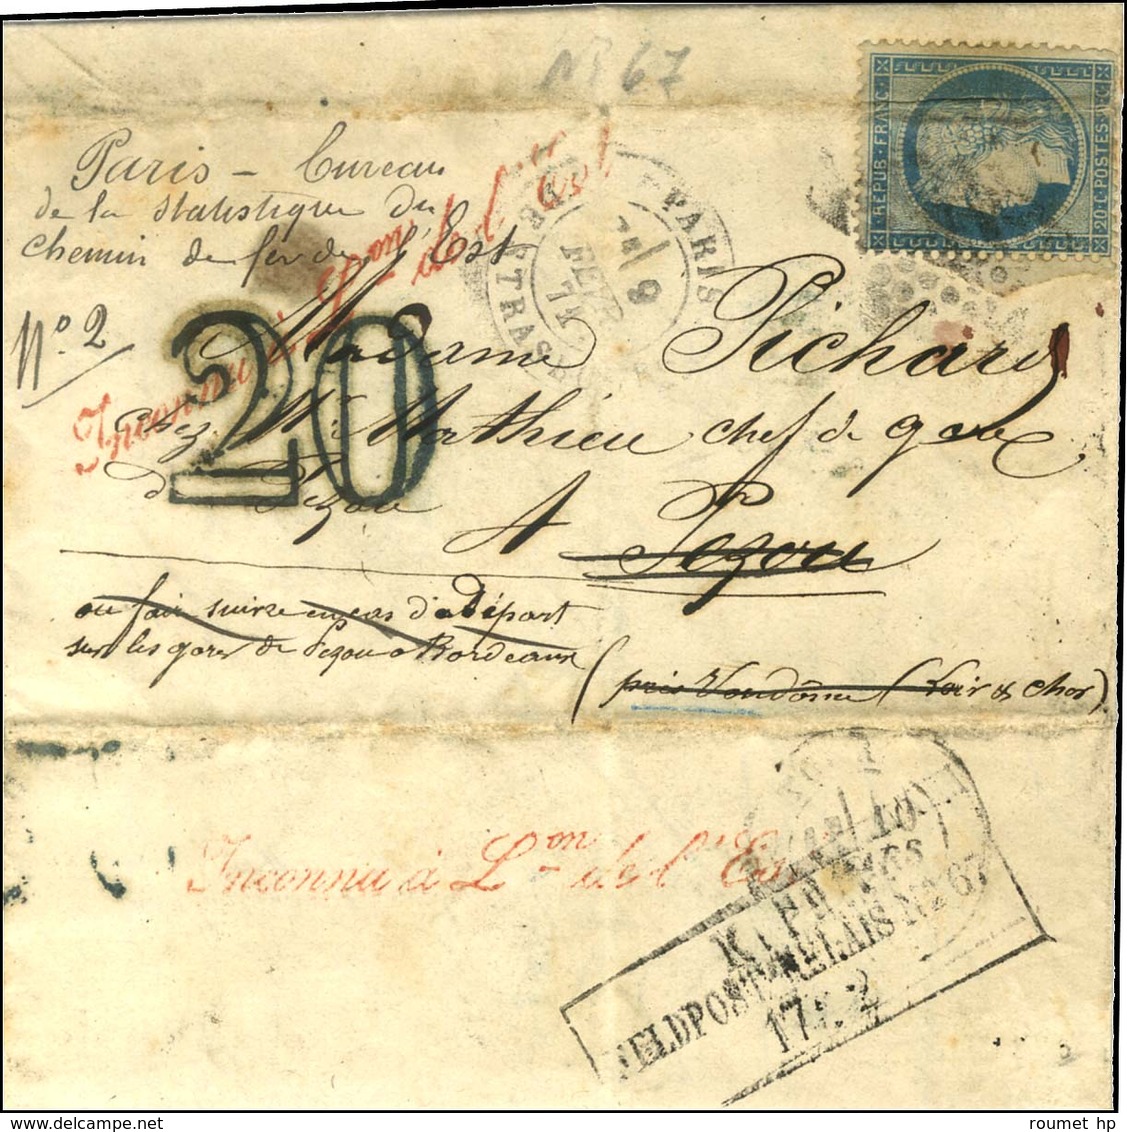 Nº 67
REPUB · FRANC
20 C. POSTES 20 C.
Paris - bureau
de la statistique du
chemin de fer de l'Est
Nº 2
PARIS
9
FEVR
71
20
Inconnu à Lon de l'Est
Madame Pichard
chez Mr Mathieu chef de gare
de Pezou
A Pezou
ou fair suivre en cas de Départ
sur les gares de Pezou a Bordeaux
(près Vendôme (Loir & Cher)
Inconnu à Lon de l'Est
K. PR.
FELDPOST RELAIS Nº 67
17 2
roumet hp